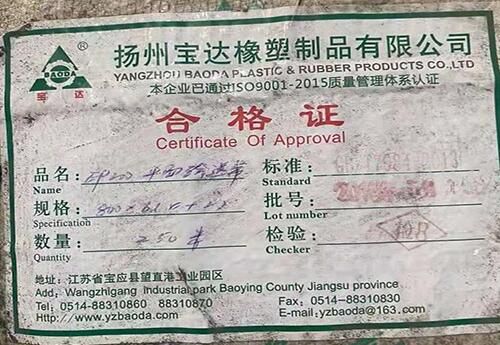 BAODA
宝达
扬州宝达橡塑制品有限公司
YANGZHOU BAODA PLASTIC & RUBBER PRODUCTS CO.,LTD
本企业已通过ISO9001-2015质量管理体系认证
合格证
Certificate Of Approval
品名: EP200 标准:
Name Standard
规格: 批号:
Specification Lot number
数量: 250 米 检验:
Quantity Checker
地址:江苏省宝应县望直港工业园区
Add: Wangzhigang Industrial park Baoying County Jiangsu province
Tel: 0514-88310860 88310870 Fax: 0514-88310830
Http://www.yzbaoda.com E-mail:yzbaoda@163.com